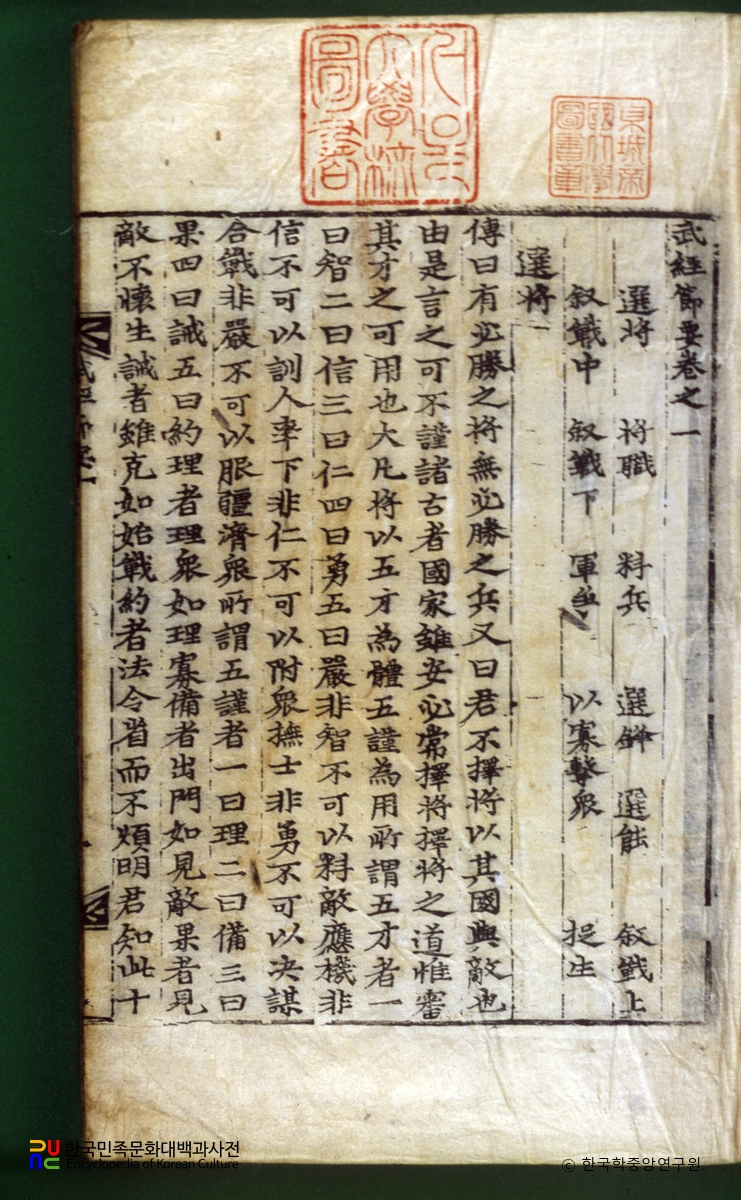 武經節要卷之一
選將 將職 料兵 選鋒 選能 叙戰上
叙戰中 叙戰下 軍爭 以寡擊衆 捉生
選將一
傳曰有必勝之将無必勝之兵又曰君不擇将以其國與敵也
由是言之可不謹諸古者國家雖安必常擇将擇将之道惟審
其才之可用也大凡将以五才為體五謹為用所謂五才者一
曰智二曰信三曰仁四曰勇五曰嚴非智不可以料敵應機非
信不可以訓人率下非仁不可以附衆撫士非勇不可以决謀
合戰非嚴不可以服疆濟衆所謂五謹者一曰理二曰備三曰
果四曰誡五曰約理者理衆如理寡備者出門如見敵果者見
敵不懷生誡者雖克如始戰約者法令省而不煩明君知此十
武經節要一
京城帝國大學圖書章
한국민족문화대백과사전
Encyclopedia of Korean Culture
© 한국학중앙연구원